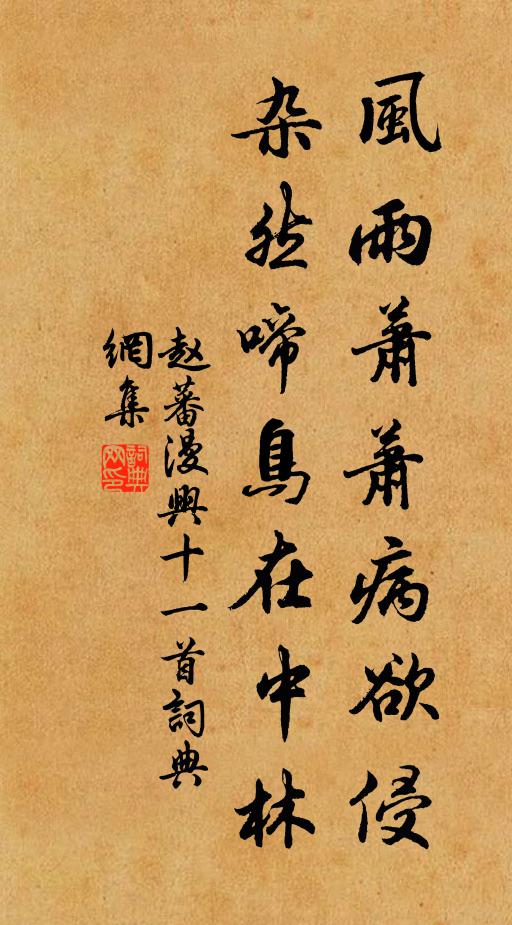 風雨蕭蕭病欲侵
杂然啼鳥在中林
赵蕃漫興十一首詞典
網集
詞典
网印